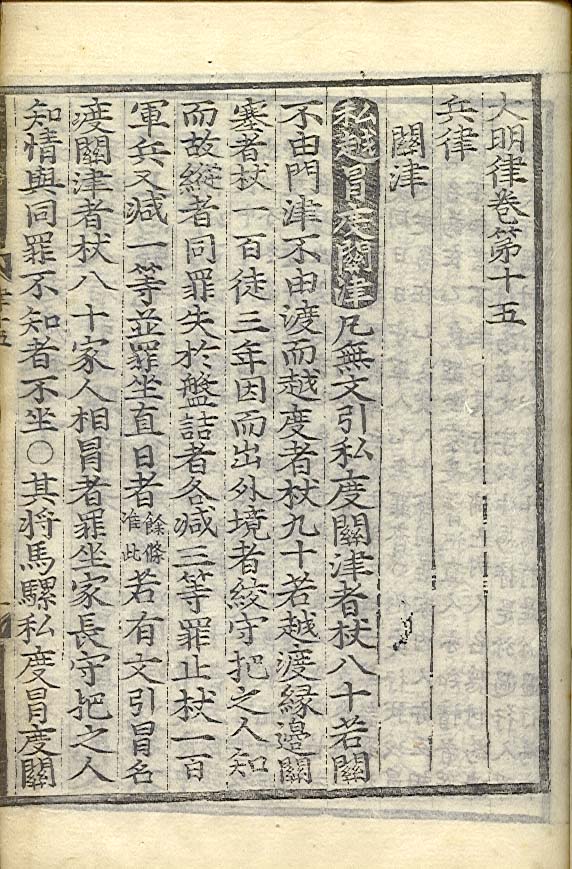 大明律卷第十五
兵律
關津
私越冒度關津 凡無文引私度關津者杖八十若關
不由門津不由渡而越度者杖九十若越渡縁邊關
塞者杖一百徒三年因而出外境者絞守把之人知
而故縱者同罪失於盤詰者各减三等罪止杖一百
軍兵又减一等並罪坐直日者餘條准此若有文引冒名
度關津者杖八十家人相冒者罪坐家長守把之人
知情與同罪不知者不坐○其將馬騾私度冒度關